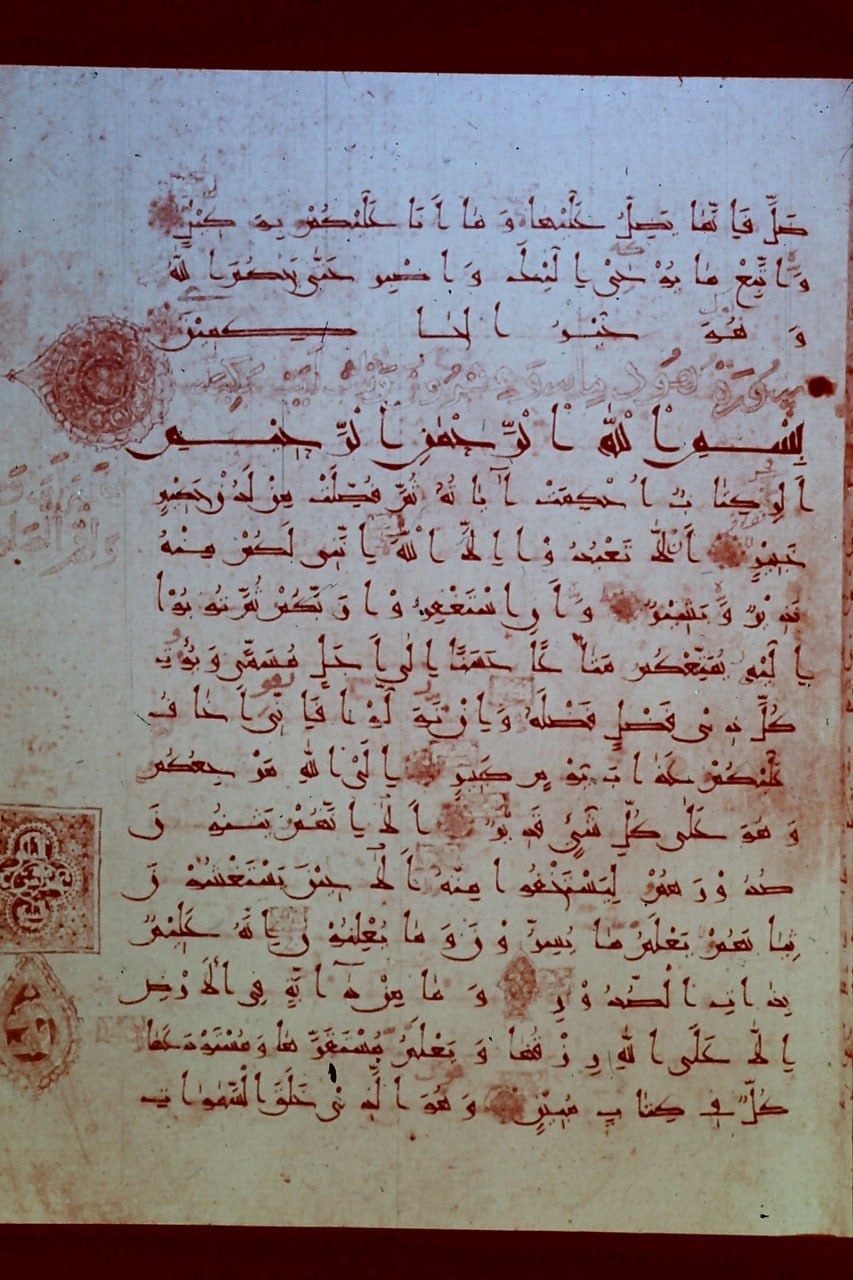 ضَلَّ فَإِنَّمَا يَضِلُّ عَلَيْهَا وَمَا أَنَا عَلَيْكُمْ بِوَكِيلٍ
وَاتَّبِعْ مَا يُوحَىٰ إِلَيْكَ وَاصْبِرْ حَتَّىٰ يَحْكُمَ اللَّهُ
وَهُوَ خَيْرُ الْحَاكِمِينَ
سورة هود مائة وعشرون وثلث
بِسْمِ اللَّهِ الرَّحْمَٰنِ الرَّحِيمِ
الر كِتَابٌ أُحْكِمَتْ آيَاتُهُ ثُمَّ فُصِّلَتْ مِنْ لَدُنْ حَكِيمٍ
خَبِيرٍ أَلَّا تَعْبُدُوا إِلَّا اللَّهَ إِنَّنِي لَكُمْ مِنْهُ
نَذِيرٌ وَبَشِيرٌ وَأَنِ اسْتَغْفِرُوا رَبَّكُمْ ثُمَّ تُوبُوا
إِلَيْهِ يُمَتِّعْكُمْ مَتَاعًا حَسَنًا إِلَىٰ أَجَلٍ مُسَمًّى وَيُؤْتِ
كُلَّ ذِي فَضْلٍ فَضْلَهُ وَإِنْ تَوَلَّوْا فَإِنِّي أَخَافُ
عَلَيْكُمْ عَذَابَ يَوْمٍ كَبِيرٍ إِلَى اللَّهِ مَرْجِعُكُمْ
وَهُوَ عَلَىٰ كُلِّ شَيْءٍ قَدِيرٌ أَلَا إِنَّهُمْ يَثْنُونَ
صُدُورَهُمْ لِيَسْتَخْفُوا مِنْهُ أَلَا حِينَ يَسْتَغْشُونَ
ثِيَابَهُمْ يَعْلَمُ مَا يُسِرُّونَ وَمَا يُعْلِنُونَ إِنَّهُ عَلِيمٌ
بِذَاتِ الصُّدُورِ وَمَا مِنْ دَابَّةٍ فِي الْأَرْضِ
إِلَّا عَلَى اللَّهِ رِزْقُهَا وَيَعْلَمُ مُسْتَقَرَّهَا وَمُسْتَوْدَعَهَا
كُلٌّ فِي كِتَابٍ مُبِينٍ وَهُوَ الَّذِي خَلَقَ السَّمَاوَاتِ